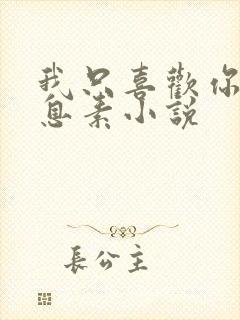 我只喜歡你
息素小説
長公主